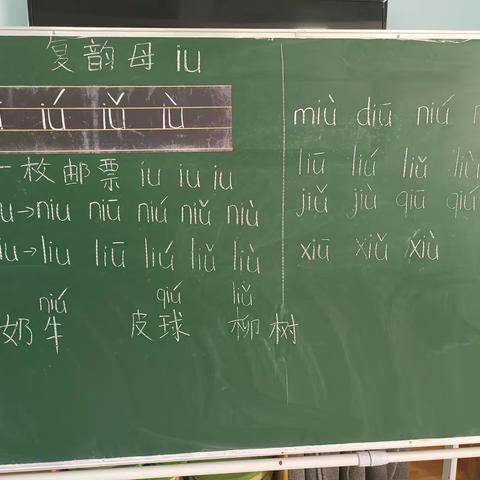 复韵母 iu
iú iǔ iù
一枚邮票 iu iu iu
u→niu niū niú niǔ niù
iu→liu liū liú liǔ liù
niú qiú liǔ
奶牛 皮球 柳树
miù diū niú
liū liú liǔ liù
jiǔ jiù qiū qiú
xiū xiǔ xiù